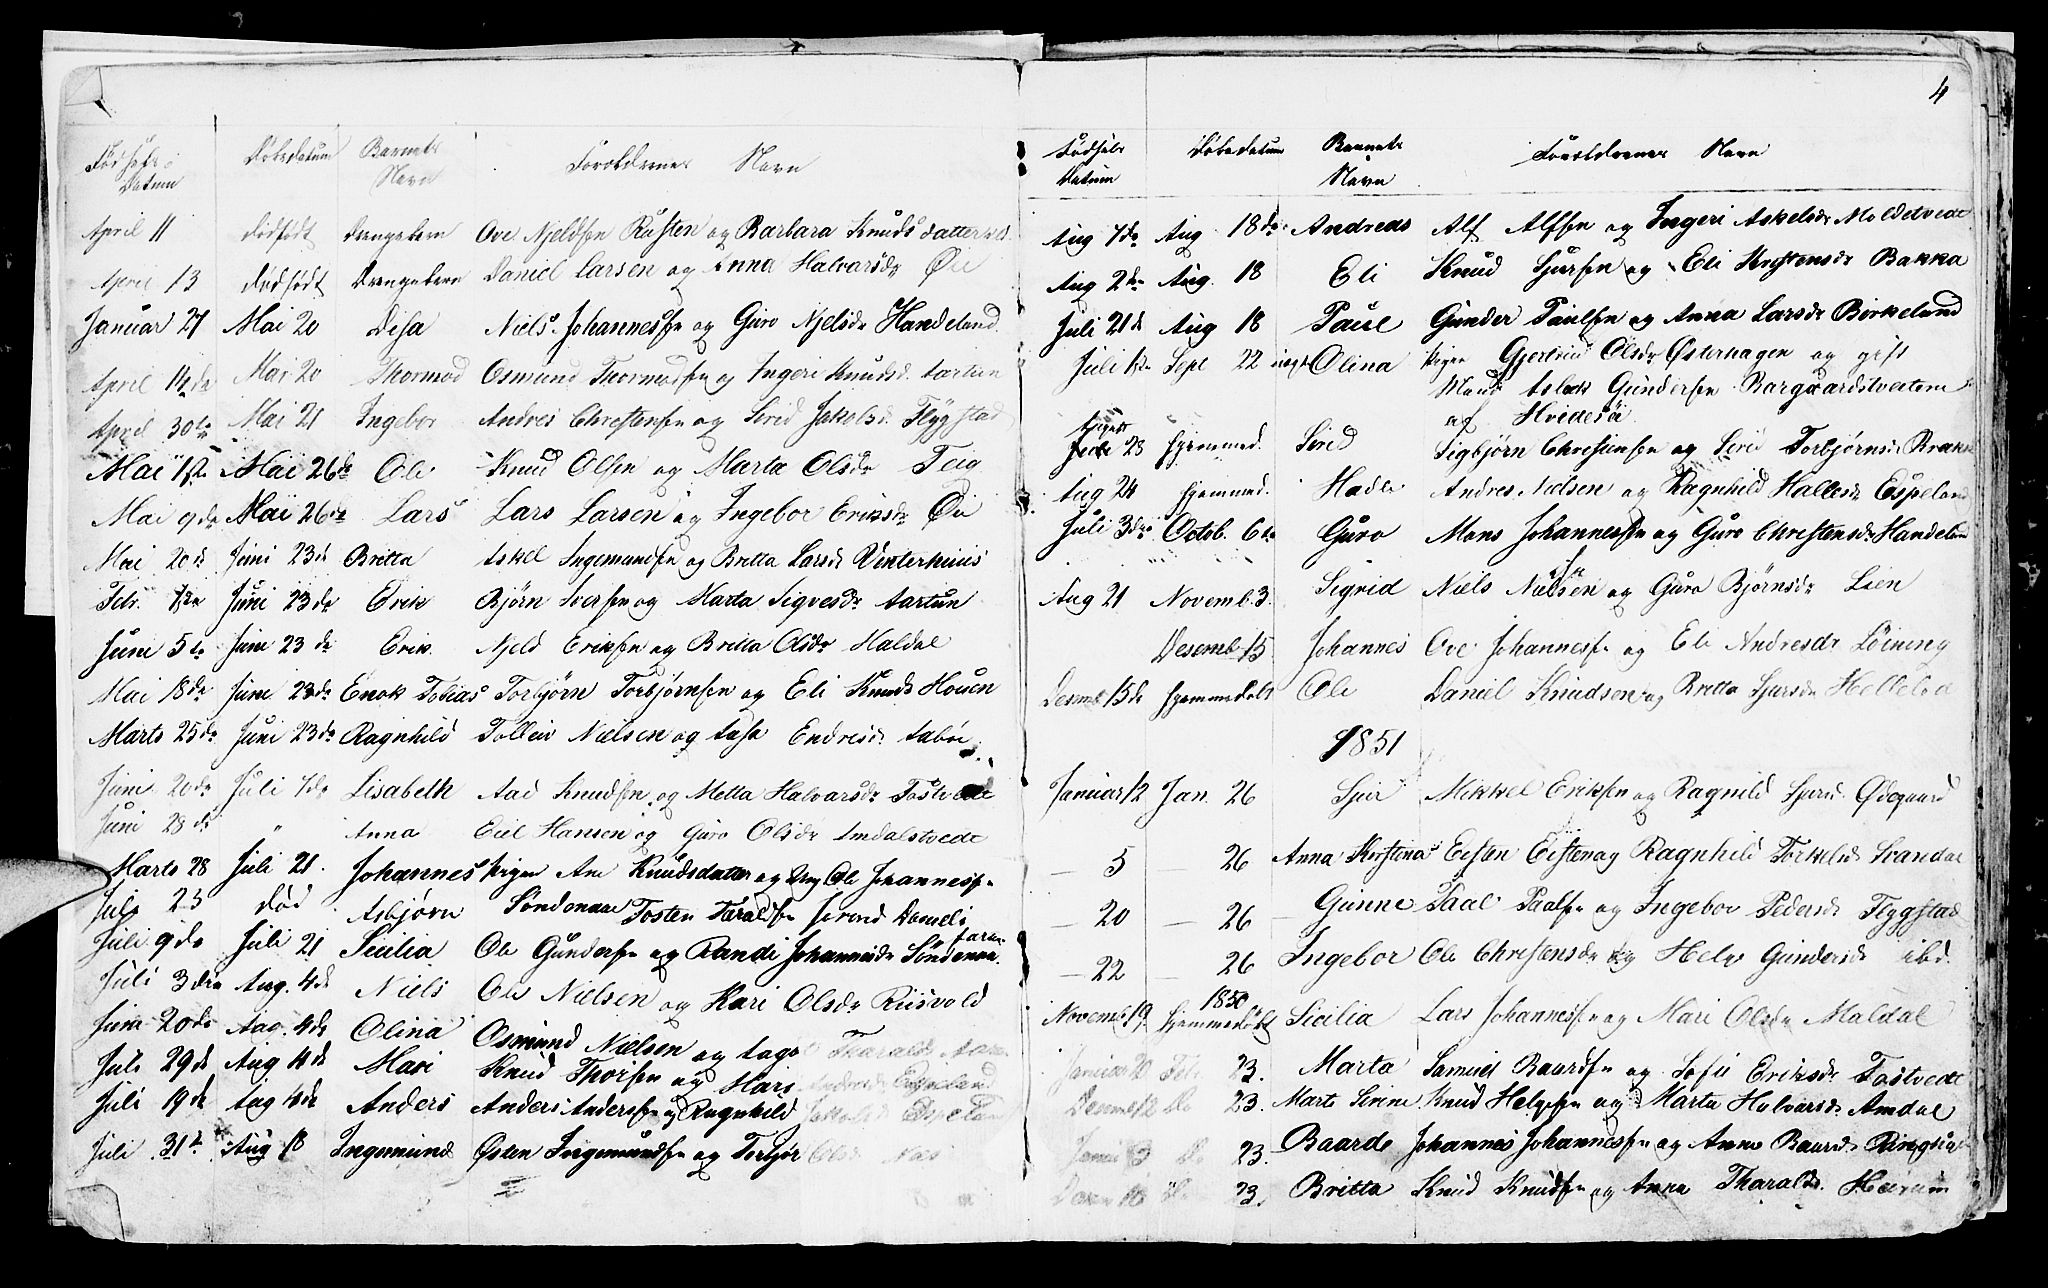 Fødsels Datum Døbedatum Barnets Navn Forældrenes Navn
April 11 dødfødt Drengebarn Ove Njeldsen Rusten og Barbara Knudsdatter
April 13 dødfødt Drengebarn Daniel Larsen og Anna Halvarsdr Øie
Januar 27 Mai 20 Disa Niels Johannessen og Guro Njelsdr Handeland
April Mai 20 Thormod Osmund Thormodsen og Ingeri Knudsd. Aartun
April 30te Mai 21 Ingebor Andres Christensen og Sirid Jakobsd. Flygstad
Mai Mai 26de Ole Knud Olsen og Marta Olsdr Teig
Mai 9de Mai 26de Lars Lars Larsen og Ingebor Eriksdr Øie
Mai 20de Juni 23de Britta Askel Ingemundsen og Britta Larsdr Vinterhuus
Febr. Juni 23de Erik Bjørn Iversen og Marta Sigvesdr Aartun
Juni 5te Juni 23de Erik Njeld Eriksen og Britta Olsdr Haldal
Mai 18de Juni 23de Enok Tobias Torbjørn Torbjørnsen og Eli Knuds Houen
Marts 25de Juni 23de Ragnhild Tolleiv Nielsen og Aasa Endresdr Aabøe
Juni 20de Juli 7de Lisabeth Aad Knudsen og Metta Halvarsdr Tostvedt
Juni 28de " Anna Eiel Hansen og Guro Olsdr Amdalstvedt
Marts 28 Juli 21. Johannes Pigen Ane Knudsdatter og Ung Ole Johannessen
Søndenaa
Juli 25 død Asbjørn Tosten Taraldsen Jorand Daniels
Juli 9de Juli 21 Sicilia Ole Gundersen og Randi Johannesdr Søndenaa
Juli 3die Aug. 4de Niels Ole Nielsen og Kari Olsdr Riisvold
Juni 20de Aug. 4de Olina Osmund Nielsen og Aago Tharalds
Juli 29de Aug 4de Mari Knud Thoisen og Mari Andersdr Espeland
Juli 19de Aug 4de Anders Anders Andersen og Ragnhild Jakobsd Espeland
Juli 31te Aug 18 Ingemund Østen Ingemundsen og Torbjør Olsd.
4
Fødsels Datum Døbedatum Barnets Navn Forældrenes Navn
Aug 7de Aug 18de Andreas Alf Alfsen og Ingeri Askelsdr Moldetvedt
Aug 2den Aug. 18 Eli Knud Sjursen og Eli Kristensdr Bakka
Juli 21de Aug 18 Paul Gunder Paulsen og Anna Larsdr Birkeland
Juli Sept 22 uægte Olina Pigen Gjertrud Olsdr Østerhagen og gift
Mand Aslak Gundersen Borgaardstveiten
af Hvidesø
August 23 hjemmed. Sirid Sigbjørn Christensen og Sirid Torbjørnsdr
Aug 24 hjemmed. Hadle Andres Nielsen og Ragnhild Hallesdr Espeland
Juli 3die Octob. 6te Guro Mons Johannessen og Guro Christensdr Handeland
Aug 21 Novemb. 3. Sigrid Niels Nielsen og Guro Bjørnsdr Lien
Desemb 15 Johannes Ove Johannessen og Eli Andresdr Løining
Desemb 15de hjemmedøbt Ole Daniel Knudsen og Britta Sjursdr Helleland
1851
Januar 12 Jan. 26 Sjur Mikkel Eriksen og Ragnild Sjursd. Ødegaard
— 5 26 Anna Kristina Eisten Eistensen og Ragnhild Torkelsdr Svandal
— 20 — 26 Gunne Paal Paalsen og Ingebor Pedersdr Flygstad
— 22 — 26 Ingebor Ole Christensen og Helge Gundersdr ibd.
Novemb 19 1850 hjemmedøbt Sicilia Lars Johannessen og Mari Olsdr Maldal
Januar 20 Feb. 23. Marta Samuel Baardsen og Sofie Eriksdr Tostvedt
Desemb 12 Do 23. Marte Sinne Knud Helgesen og Marta Halvarsdr Amdal
Do 23. Baarde Johannes Johannessen og Anne Baardsdr
Do 23. Britta Knud Knudsen og Anna Tharaldsdr